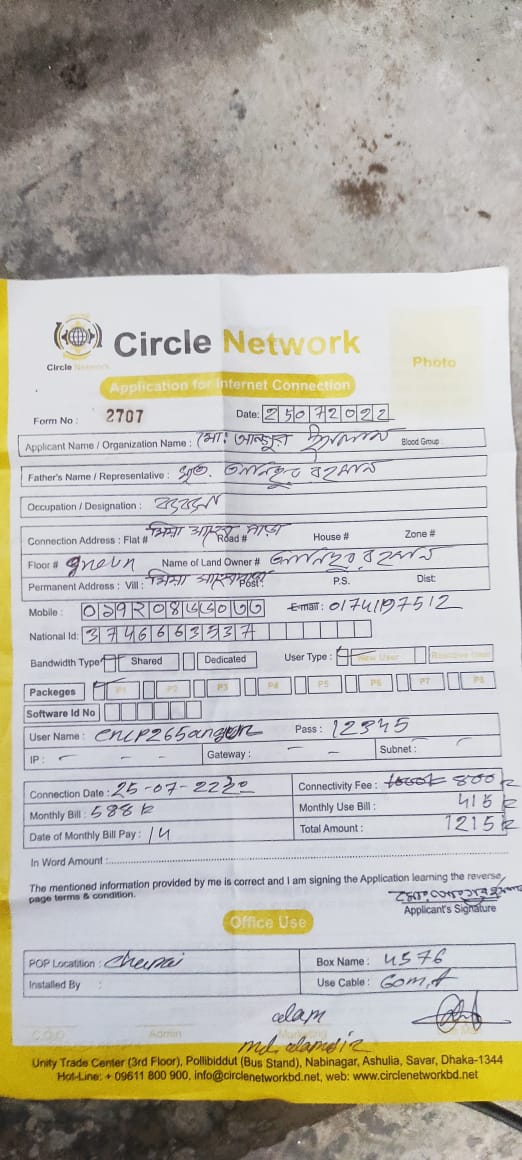 Circle Network
Circle Network
Photo
Application for Internet Connection
Form No : 2707
Date: 25072022
Applicant Name / Organization Name : মো: আব্দুর
Blood Group:
Father's Name / Representative : মৃত. আনিছুর রহমান
Occupation / Designation :
Connection Address : Flat # Road # House # Zone #
Floor # Name of Land Owner # আনিছুর রহমান
Permanent Address : Vill: Post: P.S. Dist:
Mobile : E-mail : 0174197512
National Id: 3746663537
Bandwidth Type Shared Dedicated User Type : New User
Packeges P1 P2 P3 P4 P5 P6 P7 P8
Software Id No
User Name : Pass : 12345
IP : – – Gateway : – – Subnet : –
Connection Date : 25-07-22 Connectivity Fee : 800
Monthly Bill : 588 Monthly Use Bill : 415
Date of Monthly Bill Pay : 14 Total Amount : 1215
In Word Amount :
The mentioned information provided by me is correct and I am signing the Application learning the reverse
page terms & condition.
Applicant's Signature
Office Use
POP Locatition : Box Name : 4576
Installed By : Use Cable :
C.O.O Admin Marketing
alam
Unity Trade Center (3rd Floor), Pollibiddut (Bus Stand), Nabinagar, Ashulia, Savar, Dhaka-1344
Hot-Line: + 09611 800 900, info@circlenetworkbd.net, web: www.circlenetworkbd.net